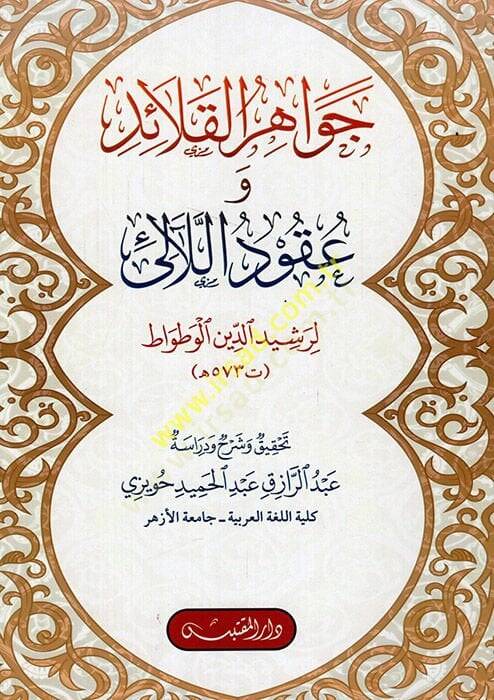 جَوَاهِرُ القَلَائِدِ
وَ
عُقُودُ اللَّآلِئِ
لِرَشِيدِ الدِّينِ الوَطْوَاطِ
(ت ٥٧٣هـ)
تَحْقِيقُ وَشَرْحُ وَدِرَاسَةُ
عَبْدُ الرَّازِقِ عَبْدِ الْحَمِيدِ حُوَيْزِي
كلية اللغة العربية - جامعة الأزهر
دار المقتبس